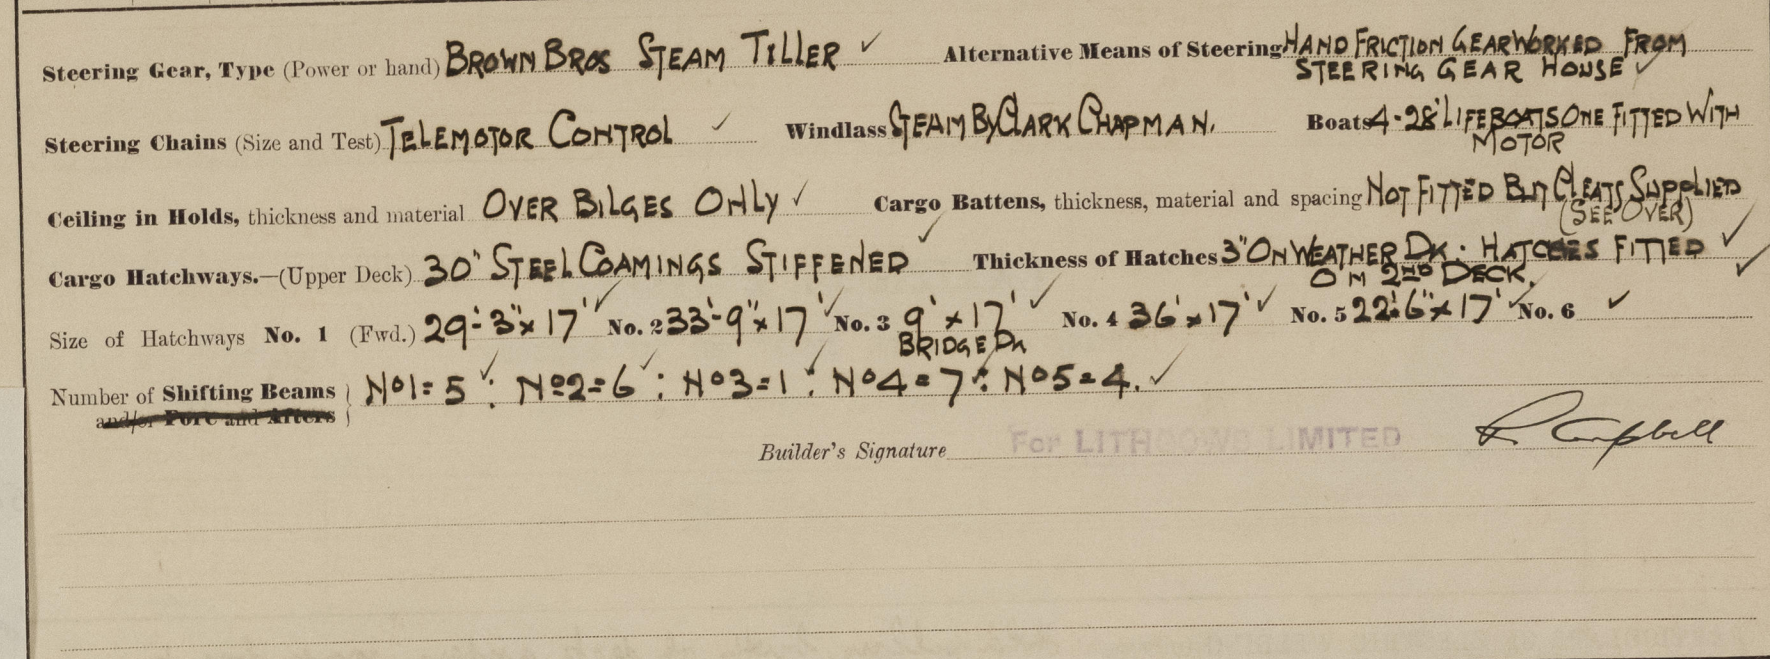 Steering Gear, Type (Power or hand) BROWN BROS STEAM TILLER ✓ Alternative Means of Steering HAND FRICTION GEAR WORKED FROM
STEERING GEAR HOUSE ✓
Steering Chains (Size and Test) TELEMOTOR CONTROL ✓ Windlass STEAM BY CLARK CHAPMAN. Boats 4-28' LIFEBOATS ONE FITTED WITH
MOTOR
Ceiling in Holds, thickness and material OVER BILGES ONLY ✓ Cargo Battens, thickness, material and spacing NOT FITTED BUT CLEATS SUPPLIED
(SEE OVER)
Cargo Hatchways.—(Upper Deck) 30" STEEL COAMINGS STIFFENED ✓ Thickness of Hatches 3" ON WEATHER DK: HATCHES FITTED ✓
ON 2ND DECK. ✓
Size of Hatchways No. 1 (Fwd.) 29'-3" x 17' ✓ No. 2 33'-9" x 17' ✓ No. 3 9' x 17' ✓ No. 4 36' x 17' ✓ No. 5 22'-6" x 17' ✓ No. 6 ✓
BRIDGE DK
Number of Shifting Beams } No1=5 ✓ : No2=6 ✓ : No3=1 ✓ : No4=7 ✓ : No5=4. ✓
and/or Fore and Afters
Builder's Signature For LITHGOWS LIMITED R. Campbell